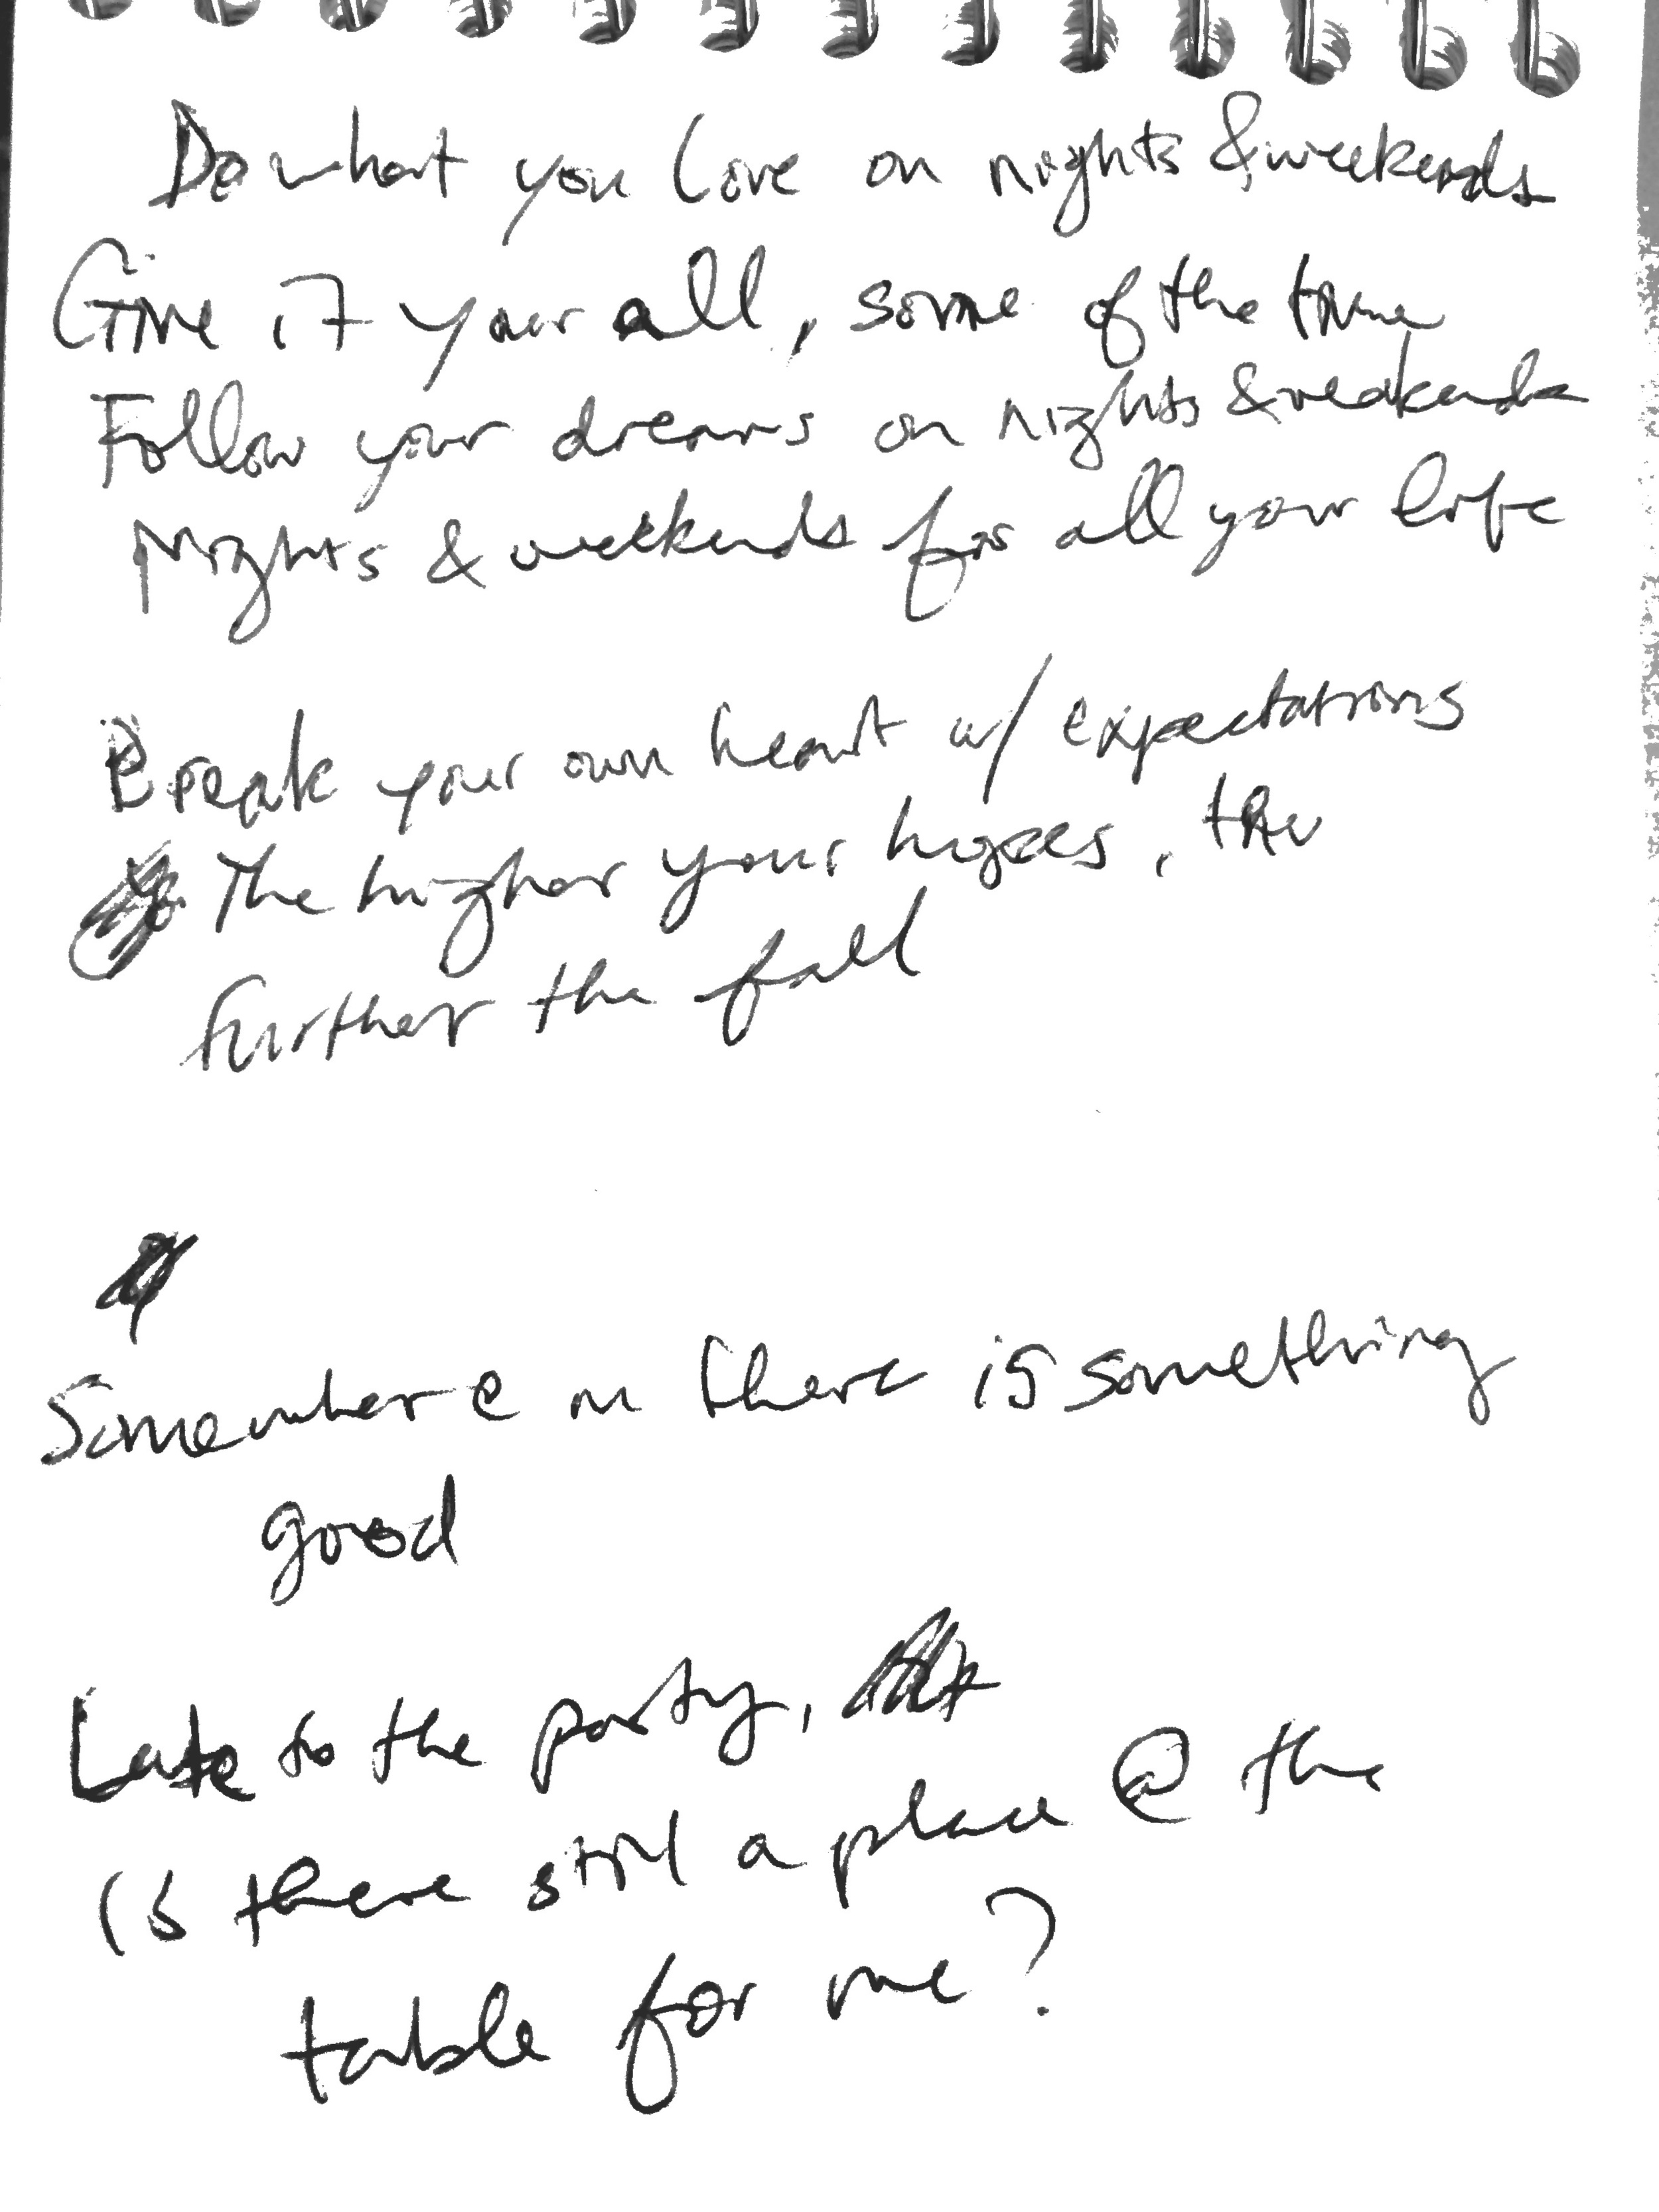 Do what you love on nights & weekends
Give it your all, some of the time
Follow your dreams on nights & weekends
Nights & weekends for all your life
Break your own heart w/ expectations
The higher your hopes, the
further the fall
Somewhere in there is something
good
Late to the party,
is there still a place @ the
table for me?